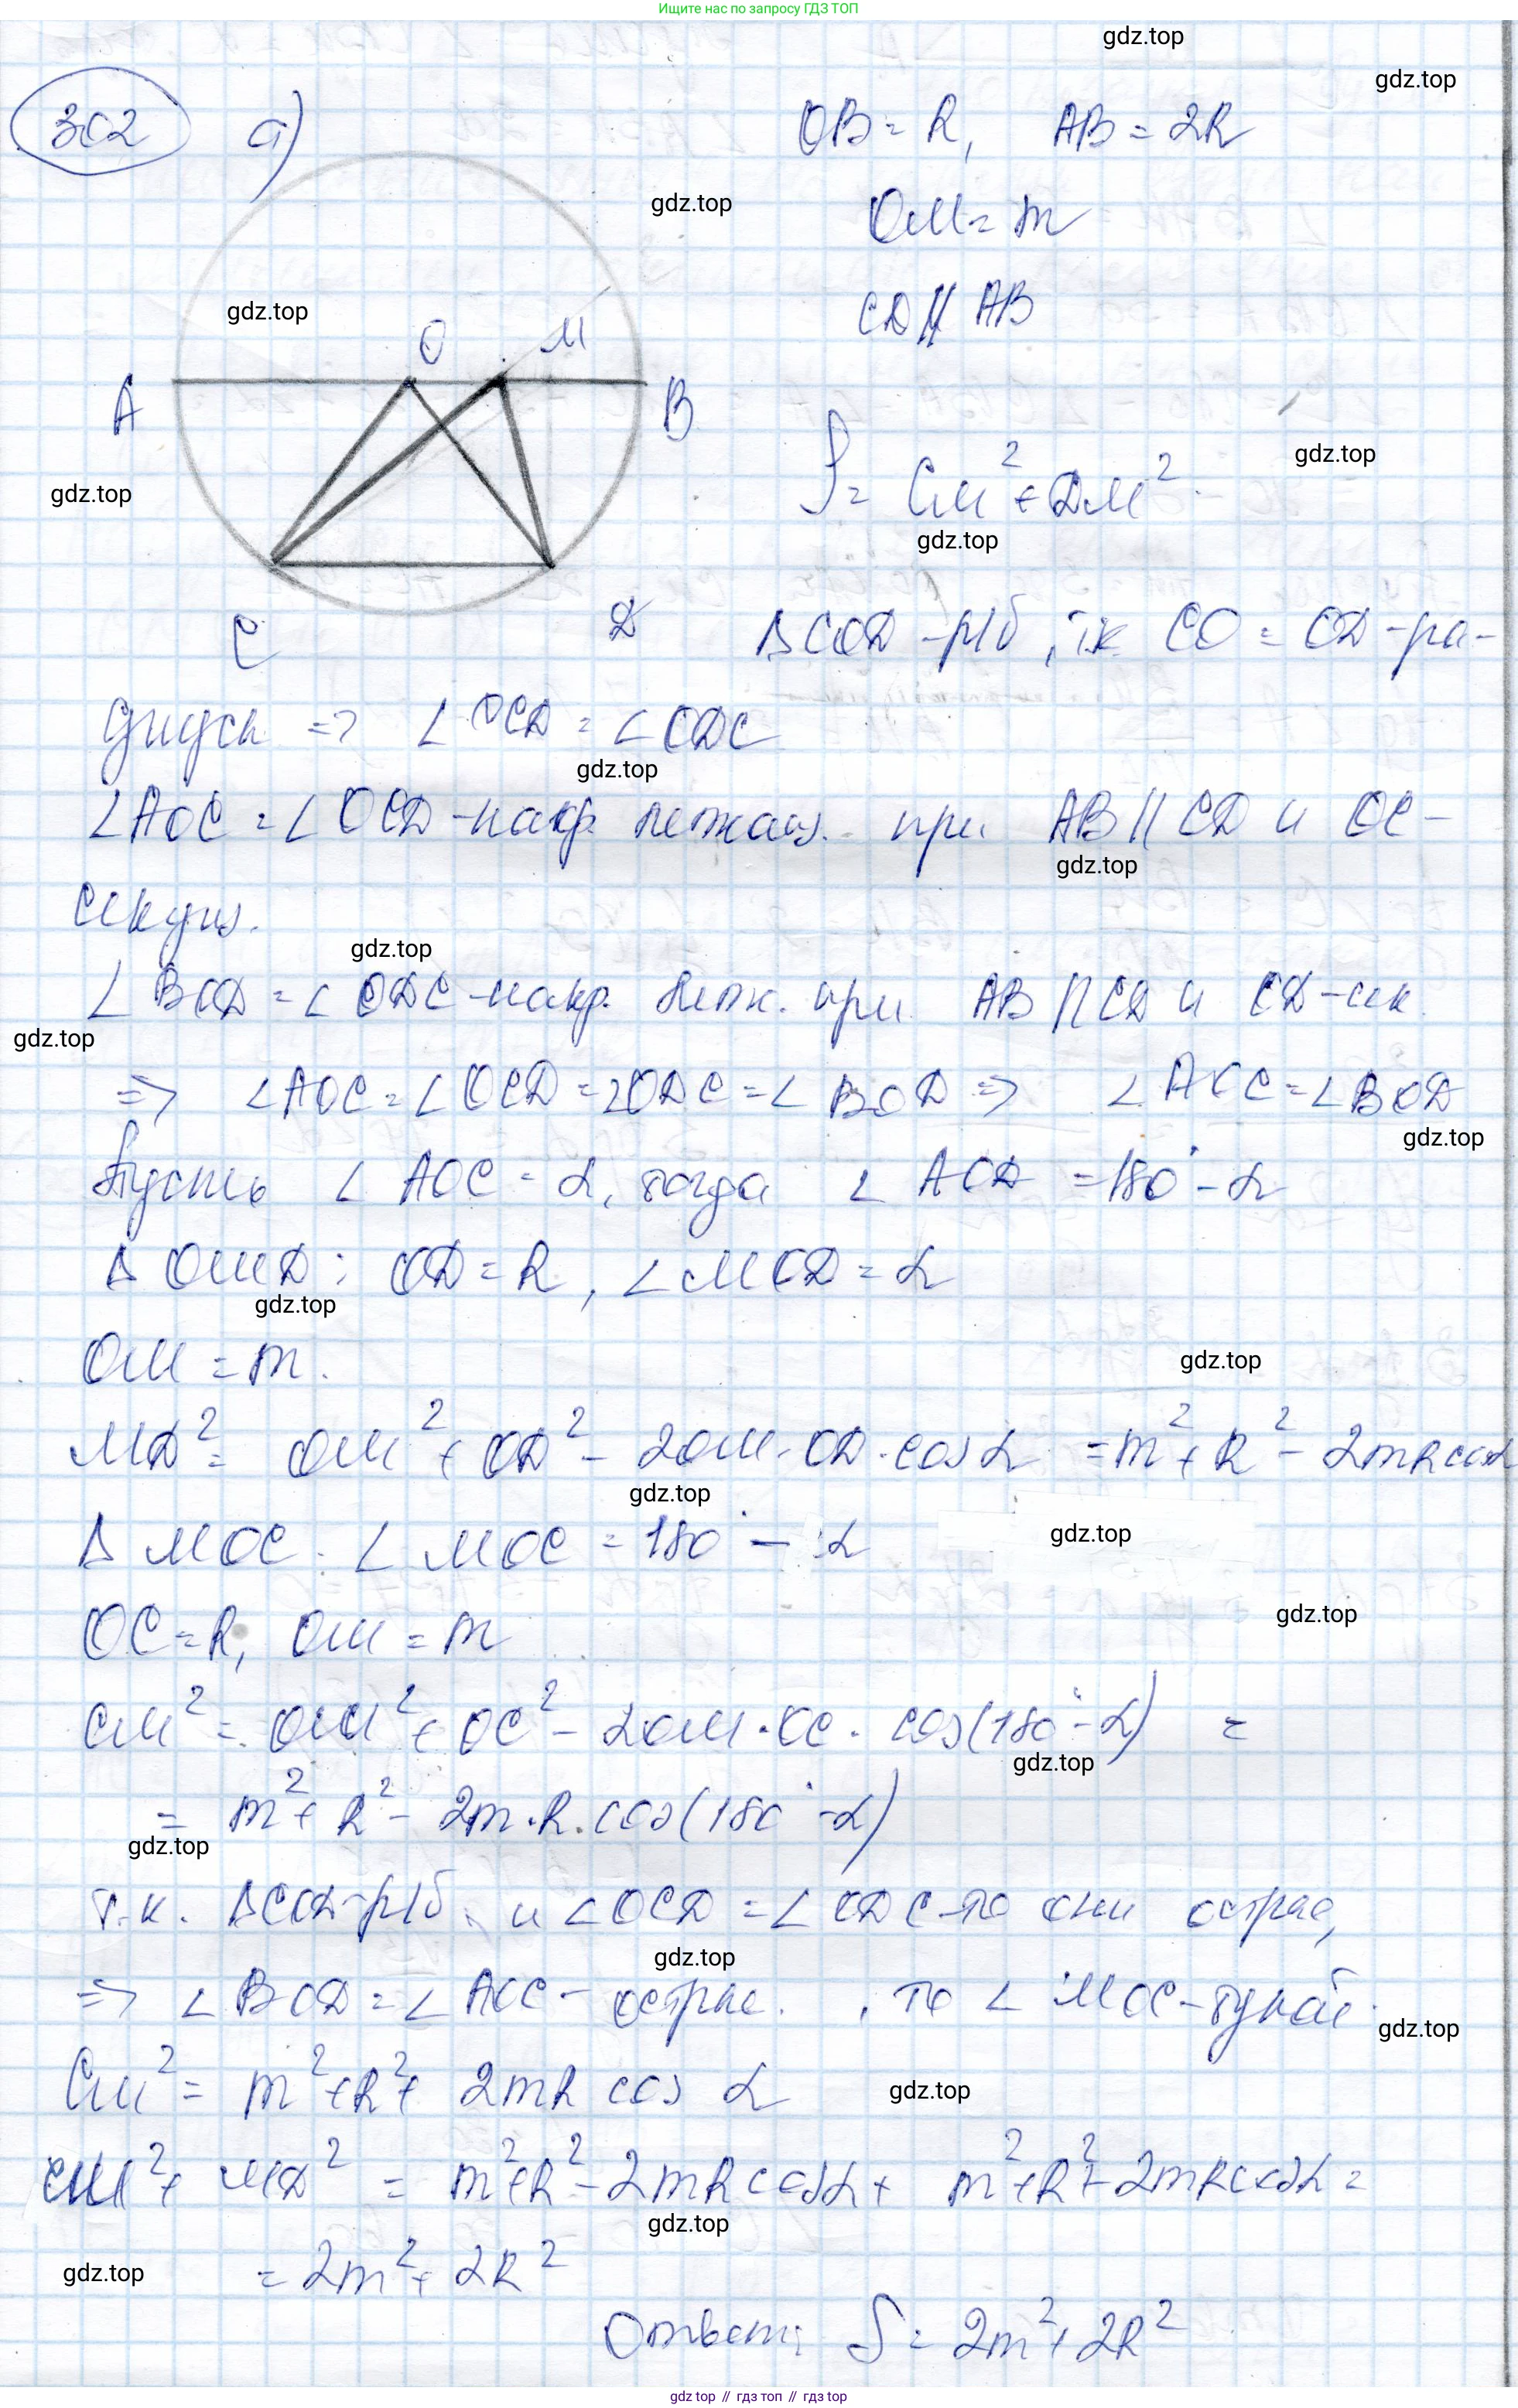 Ищите нас по запросу ГДЗ ТОП
gdz.top
gdz.top
302 а)
OB = R, AB = 2R
gdz.top
OM = m
gdz.top
CD || AB
O M
A B
gdz.top
gdz.top
S = CM² + DM²
gdz.top
C D
ΔCOD - р/б, т.к CO = OD - ра-
диусы => ∠OCD = ∠ODC
gdz.top
∠AOC = ∠OCD - накр. лежащ. при AB || CD и OC -
gdz.top
секущ.
gdz.top
∠BOD = ∠ODC - накр. леж. при AB || CD и OD - сек.
gdz.top
=> ∠AOC = ∠OCD = ∠ODC = ∠BOD => ∠AOC = ∠BOD
gdz.top
Пусть ∠AOC = α, тогда ∠AOD = 180° - α
ΔOMD: OD = R, ∠MOD = α
gdz.top
OM = m.
gdz.top
MD² = OM² + OD² - 2OM · OD · cos α = m² + R² - 2mR cos α
gdz.top
ΔMOC. ∠MOC = 180° - α
gdz.top
gdz.top
OC = R, OM = m
CM² = OM² + OC² - 2OM · OC · cos(180° - α) =
gdz.top
= m² + R² - 2m · R · cos(180° - α)
gdz.top
т.к. ΔCOD - р/б, и ∠OCD = ∠ODC - то они острые,
gdz.top
=> ∠BOD = ∠AOC - острые. , то ∠MOC - тупой.
gdz.top
CM² = m² + R² + 2mR cos α
gdz.top
CM² + MD² = m² + R² - 2mR cos α + m² + R² + 2mR cos α =
gdz.top
= 2m² + 2R²
gdz.top
Ответ: S = 2m² + 2R²
gdz top // гдз топ // гдз top